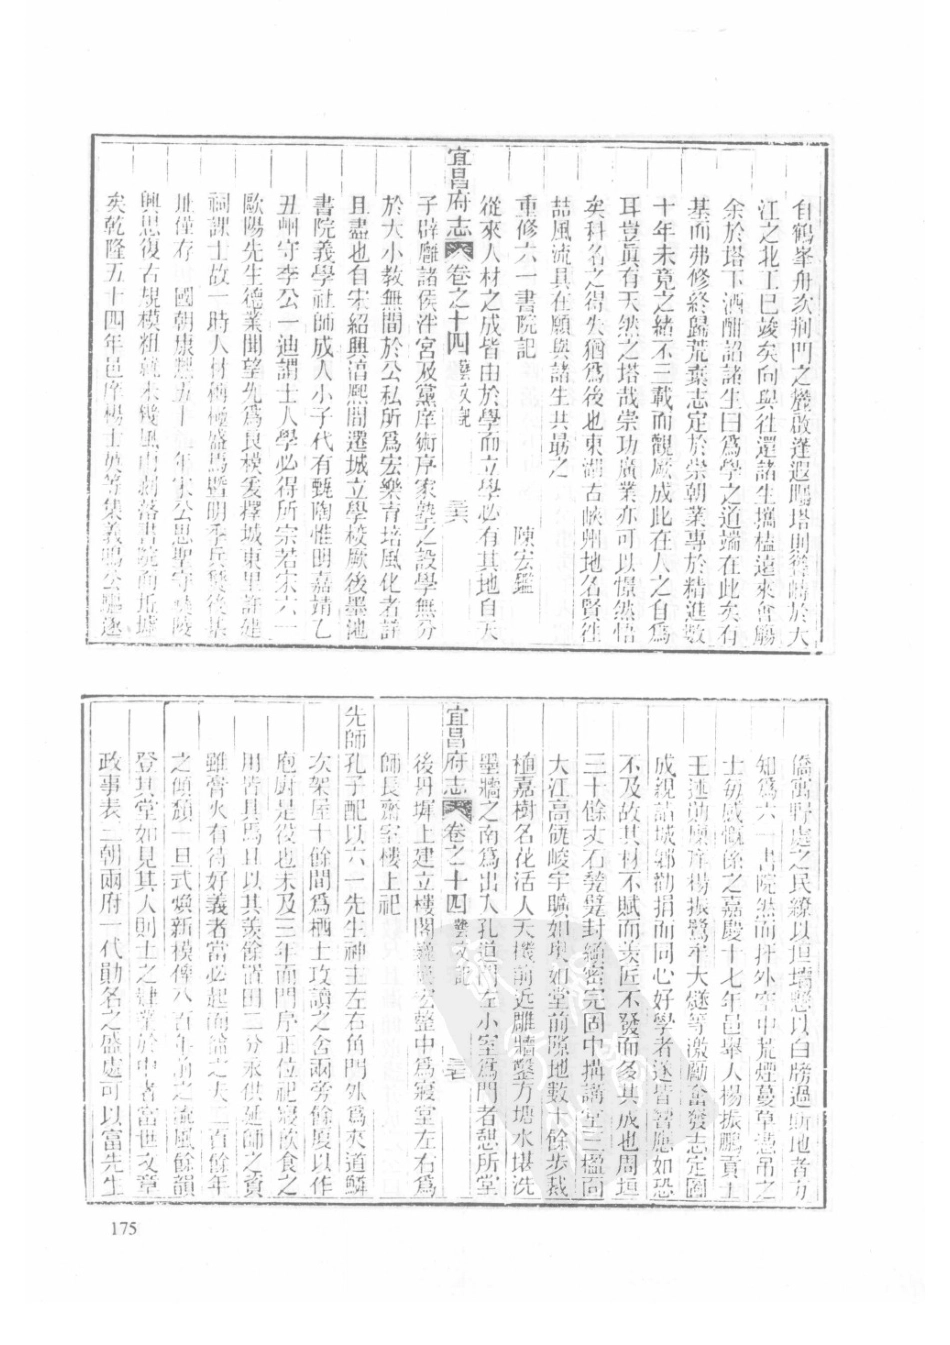 自鶴峯舟次荊門之麓啟蓬遐矚塔則巋峙於大
江之北工巳竣矣向與往還諸生攜榼遠來會觴
余於塔下酒酣詔諸生曰為學之道端在此矣有
基而弗修終歸荒棄志定於崇朝業專於精進數
十年未竟之緒不三載而觀厥成此在人之自為
耳豈眞有天然之塔哉崇功廣業亦可以憬然悟
矣科名之得失猶為後也東湖古峽州地名賢往
喆風流具在願與諸生共最之
重修六一書院記　陳宏鑑
從來人材之成皆由於學而立學必有其地自天
宜昌府志　卷之十四　藝文記　三六
子辟廱諸侯泮宮及黨庠術序家塾之設學無分
於大小教無間於公私所為宏樂育培風化者詳
且盡也自宋紹興淳熙間遷城立學校厥後墨池
書院義學社師成人小子代有甄陶惟明嘉靖乙
丑州守李公一迪謂士人學必得所宗若宋六一
歐陽先生德業聞望允為良模爰擇城東里許建
祠課士故一時人材稱極盛焉暨明季兵燹後基
址僅存　國朝康熙五十　年宋公思聖守彝陵
興思復古規模粗就未幾風雨剝落書院而坵墟
矣乾隆五十四年邑庠楊士　等集義鳴公驅逐
僑寓野處之民繚以垣墉懸以白牓過斯地者方
知為六一書院然而扞外空中荒煙蔓草憑弔之
士每感慨係之嘉慶十七年邑舉人楊振鵬貢士
王述前廩庠楊振鷺牟大燧等激勵奮發志定圖
成親詣城鄉勸捐而同心好學者遂皆響應如恐
不及故其材不賦而羨匠不發而多其成也周垣
三十餘丈石甃甓封緻密完固中搆講室三楹面
大江高甍峻宇曠如奥如堂前隙地數十餘步栽
植嘉樹名花活人天機前近雕牆鑿方塘水堪洗
墨牆之南為出入孔道闢左小室為門者憩所堂
宜昌府志　卷之十四　藝文記　三七
後丹墀上建立樓閣巍峩宏整中為寢堂左右為
師長齋室樓上祀
先師孔子配以六一先生神主左右角門外為夾道鱗
次架屋十餘間為栖士攻讀之舍兩旁餘廈以作
庖廚是役也未及三年而門序正位祀寢飲食之
用皆具焉且以其羨餘置田二分永供延師之資
雖膏火有待好義者當必起而籌之夫二百餘年
之傾頹一旦式煥新模俾八百年前之流風餘韻
登其堂如見其人則士之肄業於中者當世文章
政事表三朝兩府一代勛名之盛處可以富先生
175